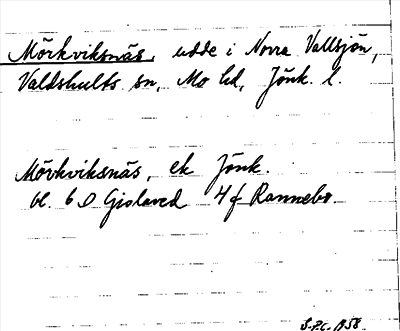 Mörkviksnäs, udde i Norra Vallsjön,
Valdshults sn, Mo hd, Jönk. l.
Mörkviksnäs, ek Jönk.
bl. 6 D Gislaved 4 f Rannebo
S.P.C. 1958.